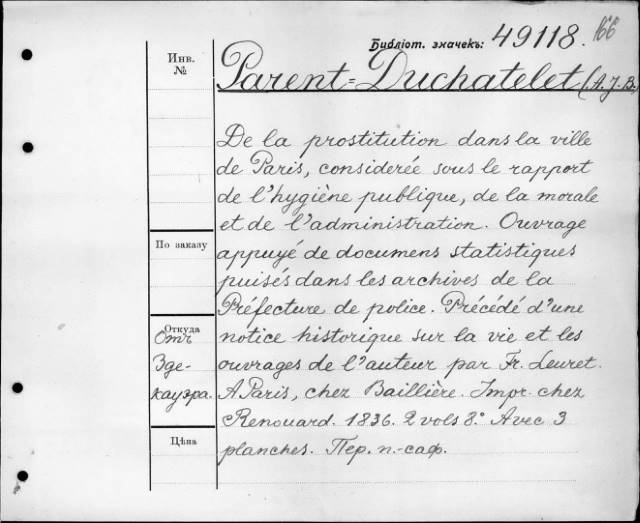 Библіот. значекъ: 49118. 166
Инв. №
Parent-Duchatelet (A. J. B.)
De la prostitution dans la ville
de Paris, considerée sous le rapport
de l'hygiène publique, de la morale
et de l'administration. Ouvrage
По заказу
appuyé de documens statistiques
puisés dans les archives de la
Préfecture de police. Précédé d'une
Откуда
Отъ
notice historique sur la vie et les
Зде-
ouvrages de l'auteur par Fr. Leuret.
кауэра.
A Paris, chez Baillière. Impr. chez
Renouard. 1836. 2 vols 8.° Avec 3
Цѣна
planches. Пер. п.-саф.